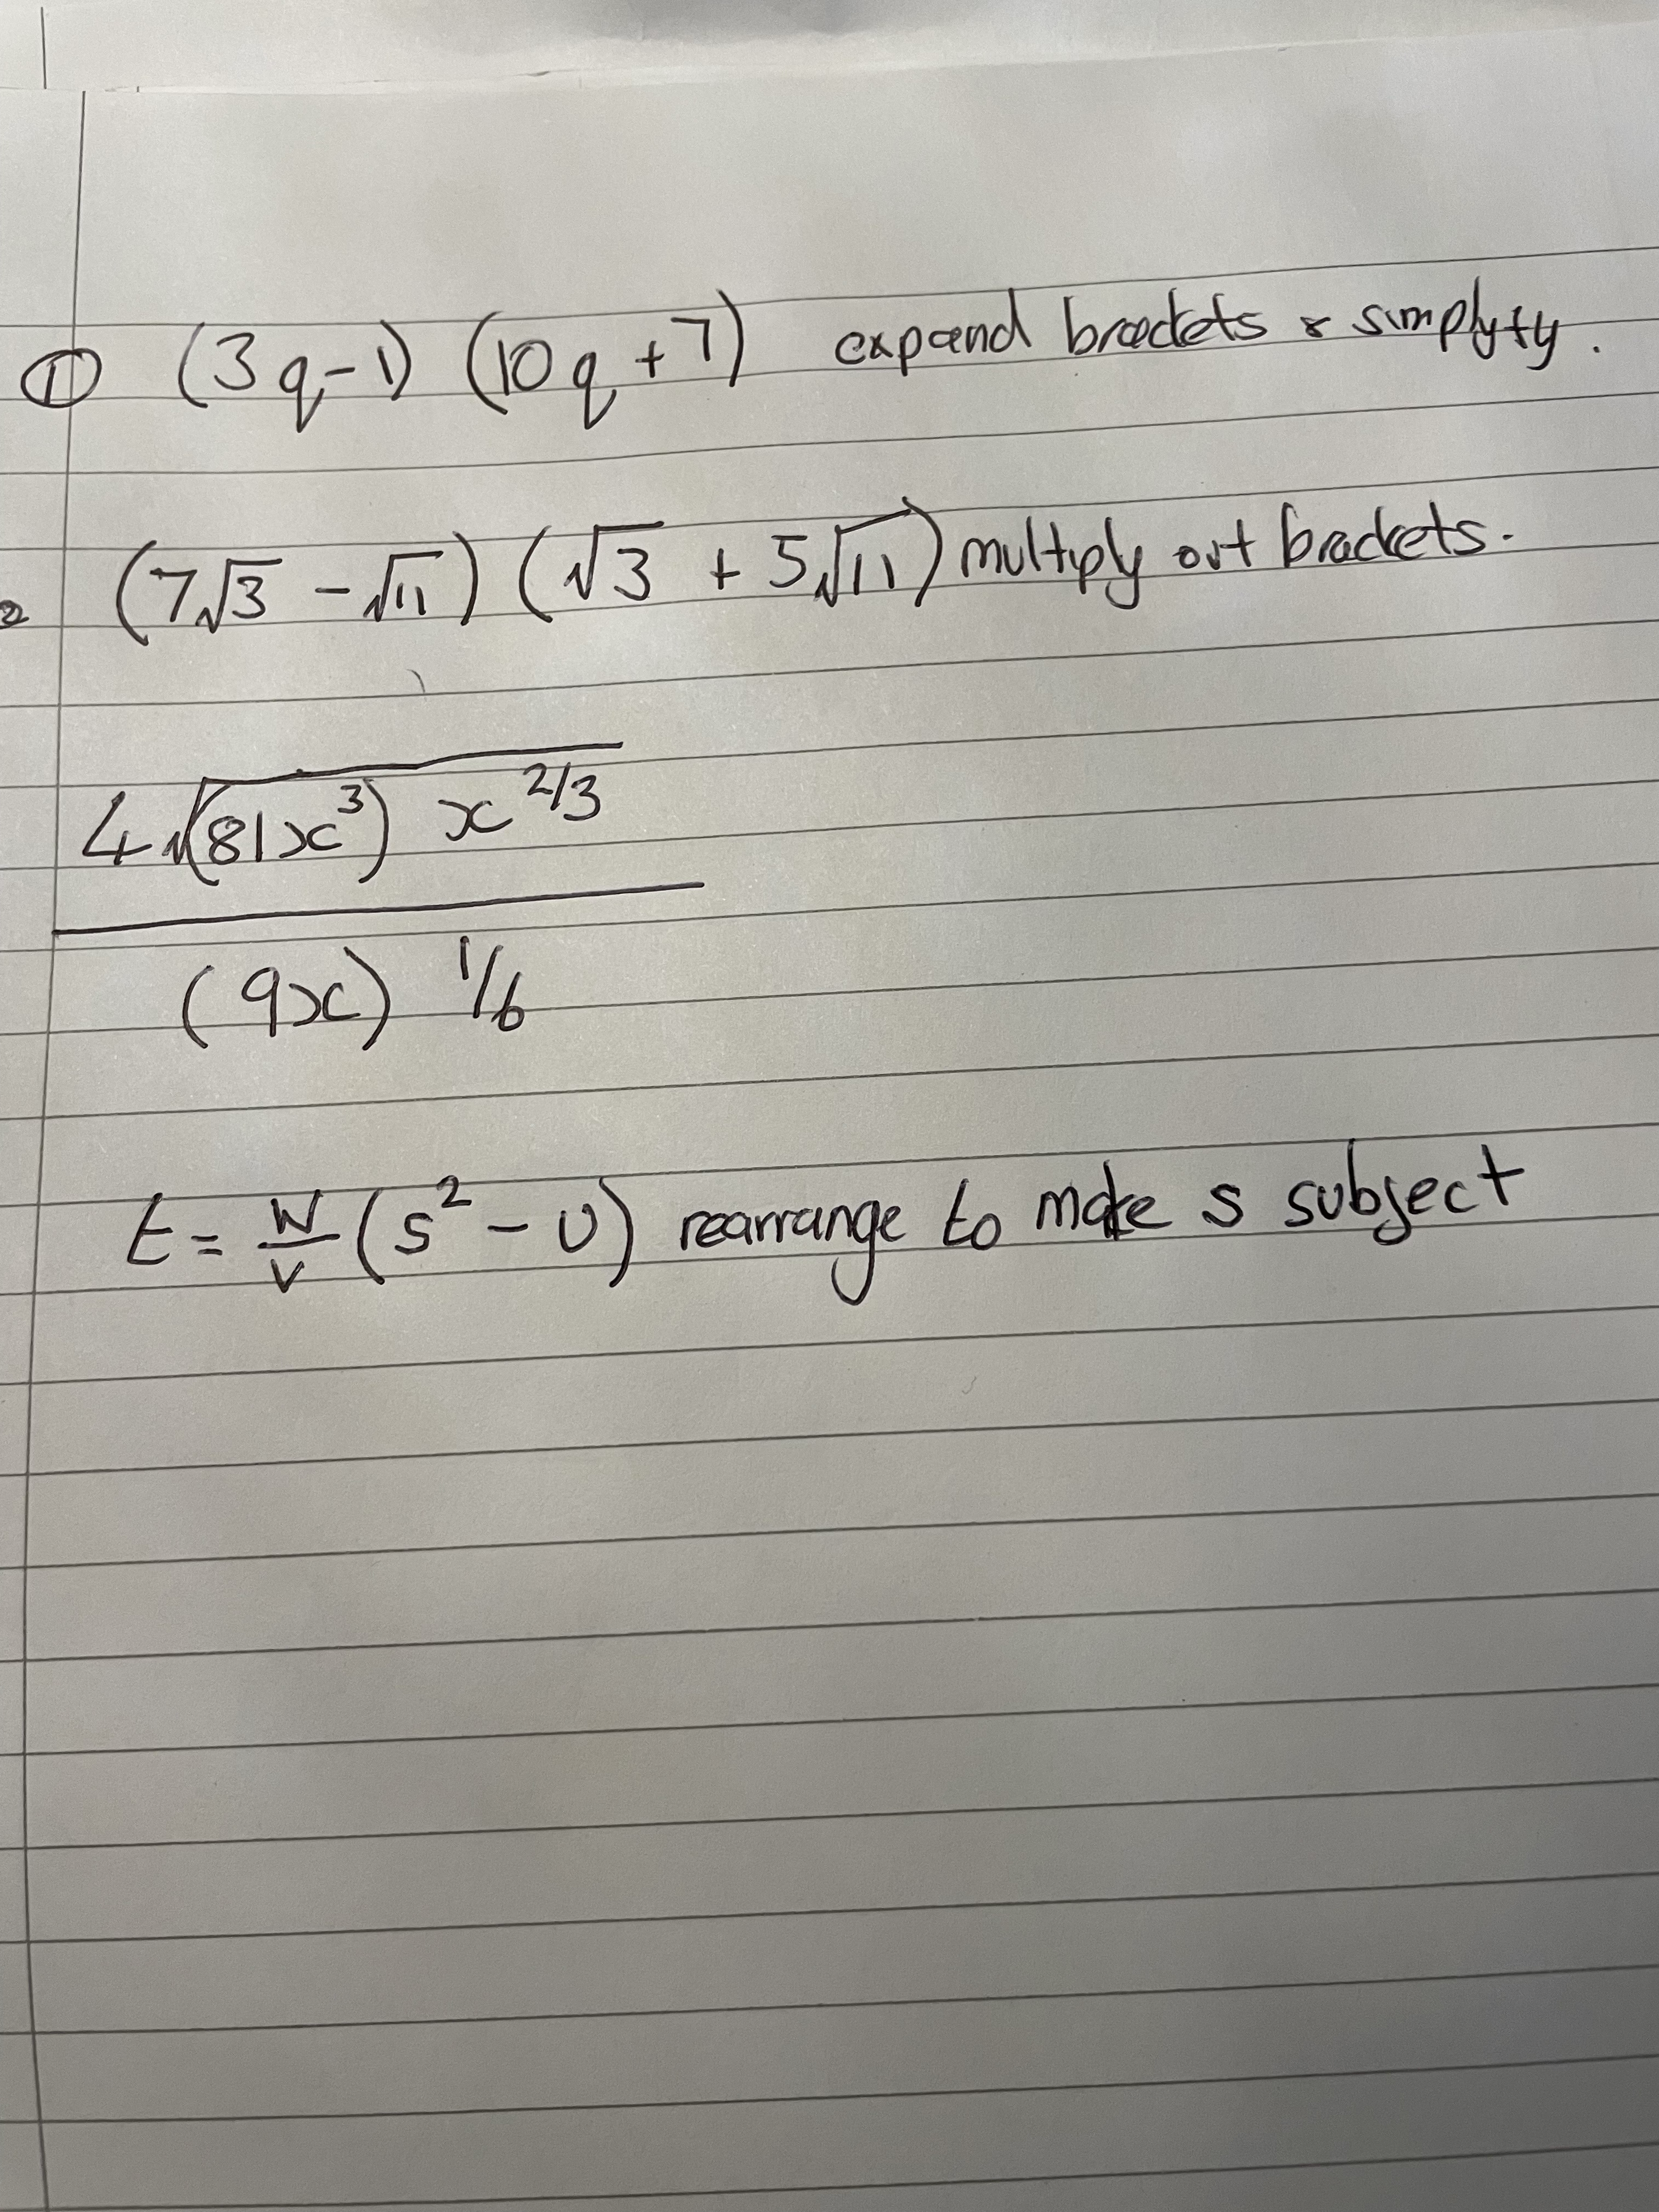 ① (3q-1) (10q+7) expand brackets & simplyfy.
2 (7√3 - √11) (√3 + 5√11) multiply out brackets.
4√(81x³) x^2/3
(9x) 1/6
t = w/v (s² - u) rearrange to make s subject